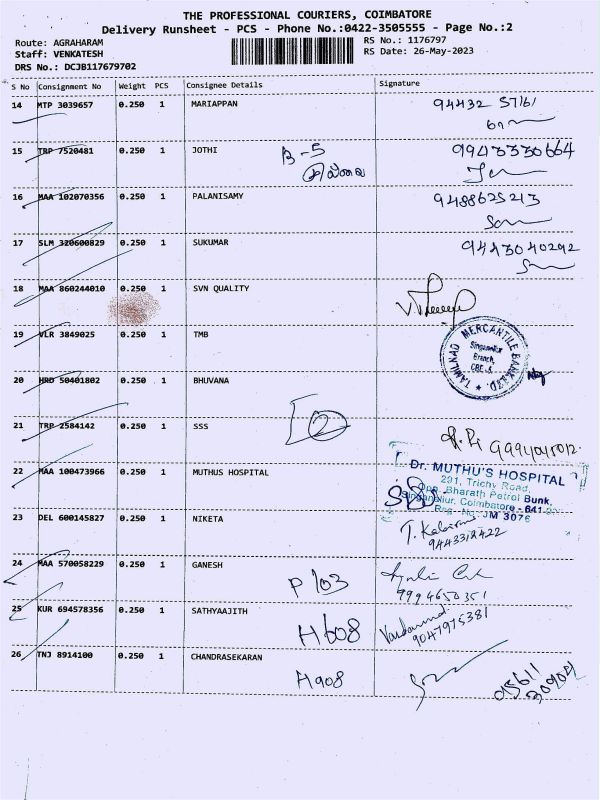 THE PROFESSIONAL COURIERS, COIMBATORE
Delivery Runsheet - PCS - Phone No.:0422-3505555 - Page No.:2
Route: AGRAHARAM RS No.: 1176797
Staff: VENKATESH RS Date: 26-May-2023
DRS No.: DCJB117679702
S No Consignment No Weight PCS Consignee Details Signature
14 MTP 3039657 0.250 1 MARIAPPAN 94432 57161
15 TRP 7520481 0.250 1 JOTHI B-5 9943330664
16 MAA 102070356 0.250 1 PALANISAMY 9488625213
17 SLM 320600829 0.250 1 SUKUMAR 9443040292
18 MAA 860244010 0.250 1 SVN QUALITY
19 VLR 3849025 0.250 1 TMB
TAMILNAD MERCANTILE BANK LTD.
Singanallur
Branch,
CBE-5
20 HRD 50401802 0.250 1 BHUVANA
21 TRP 2584142 0.250 1 SSS 2
22 MAA 100473966 0.250 1 MUTHUS HOSPITAL
Dr. MUTHU'S HOSPITAL
291, Trichy Road,
Opp. Bharath Petrol Bunk,
Singanallur, Coimbatore - 641
Reg. No: JM 3076
23 DEL 600145827 0.250 1 NIKETA
9443312422
24 MAA 570058229 0.250 1 GANESH P 103
9994650351
25 KUR 694578356 0.250 1 SATHYAAJITH H608
9047975381
26 TNJ 8914100 0.250 1 CHANDRASEKARAN H908